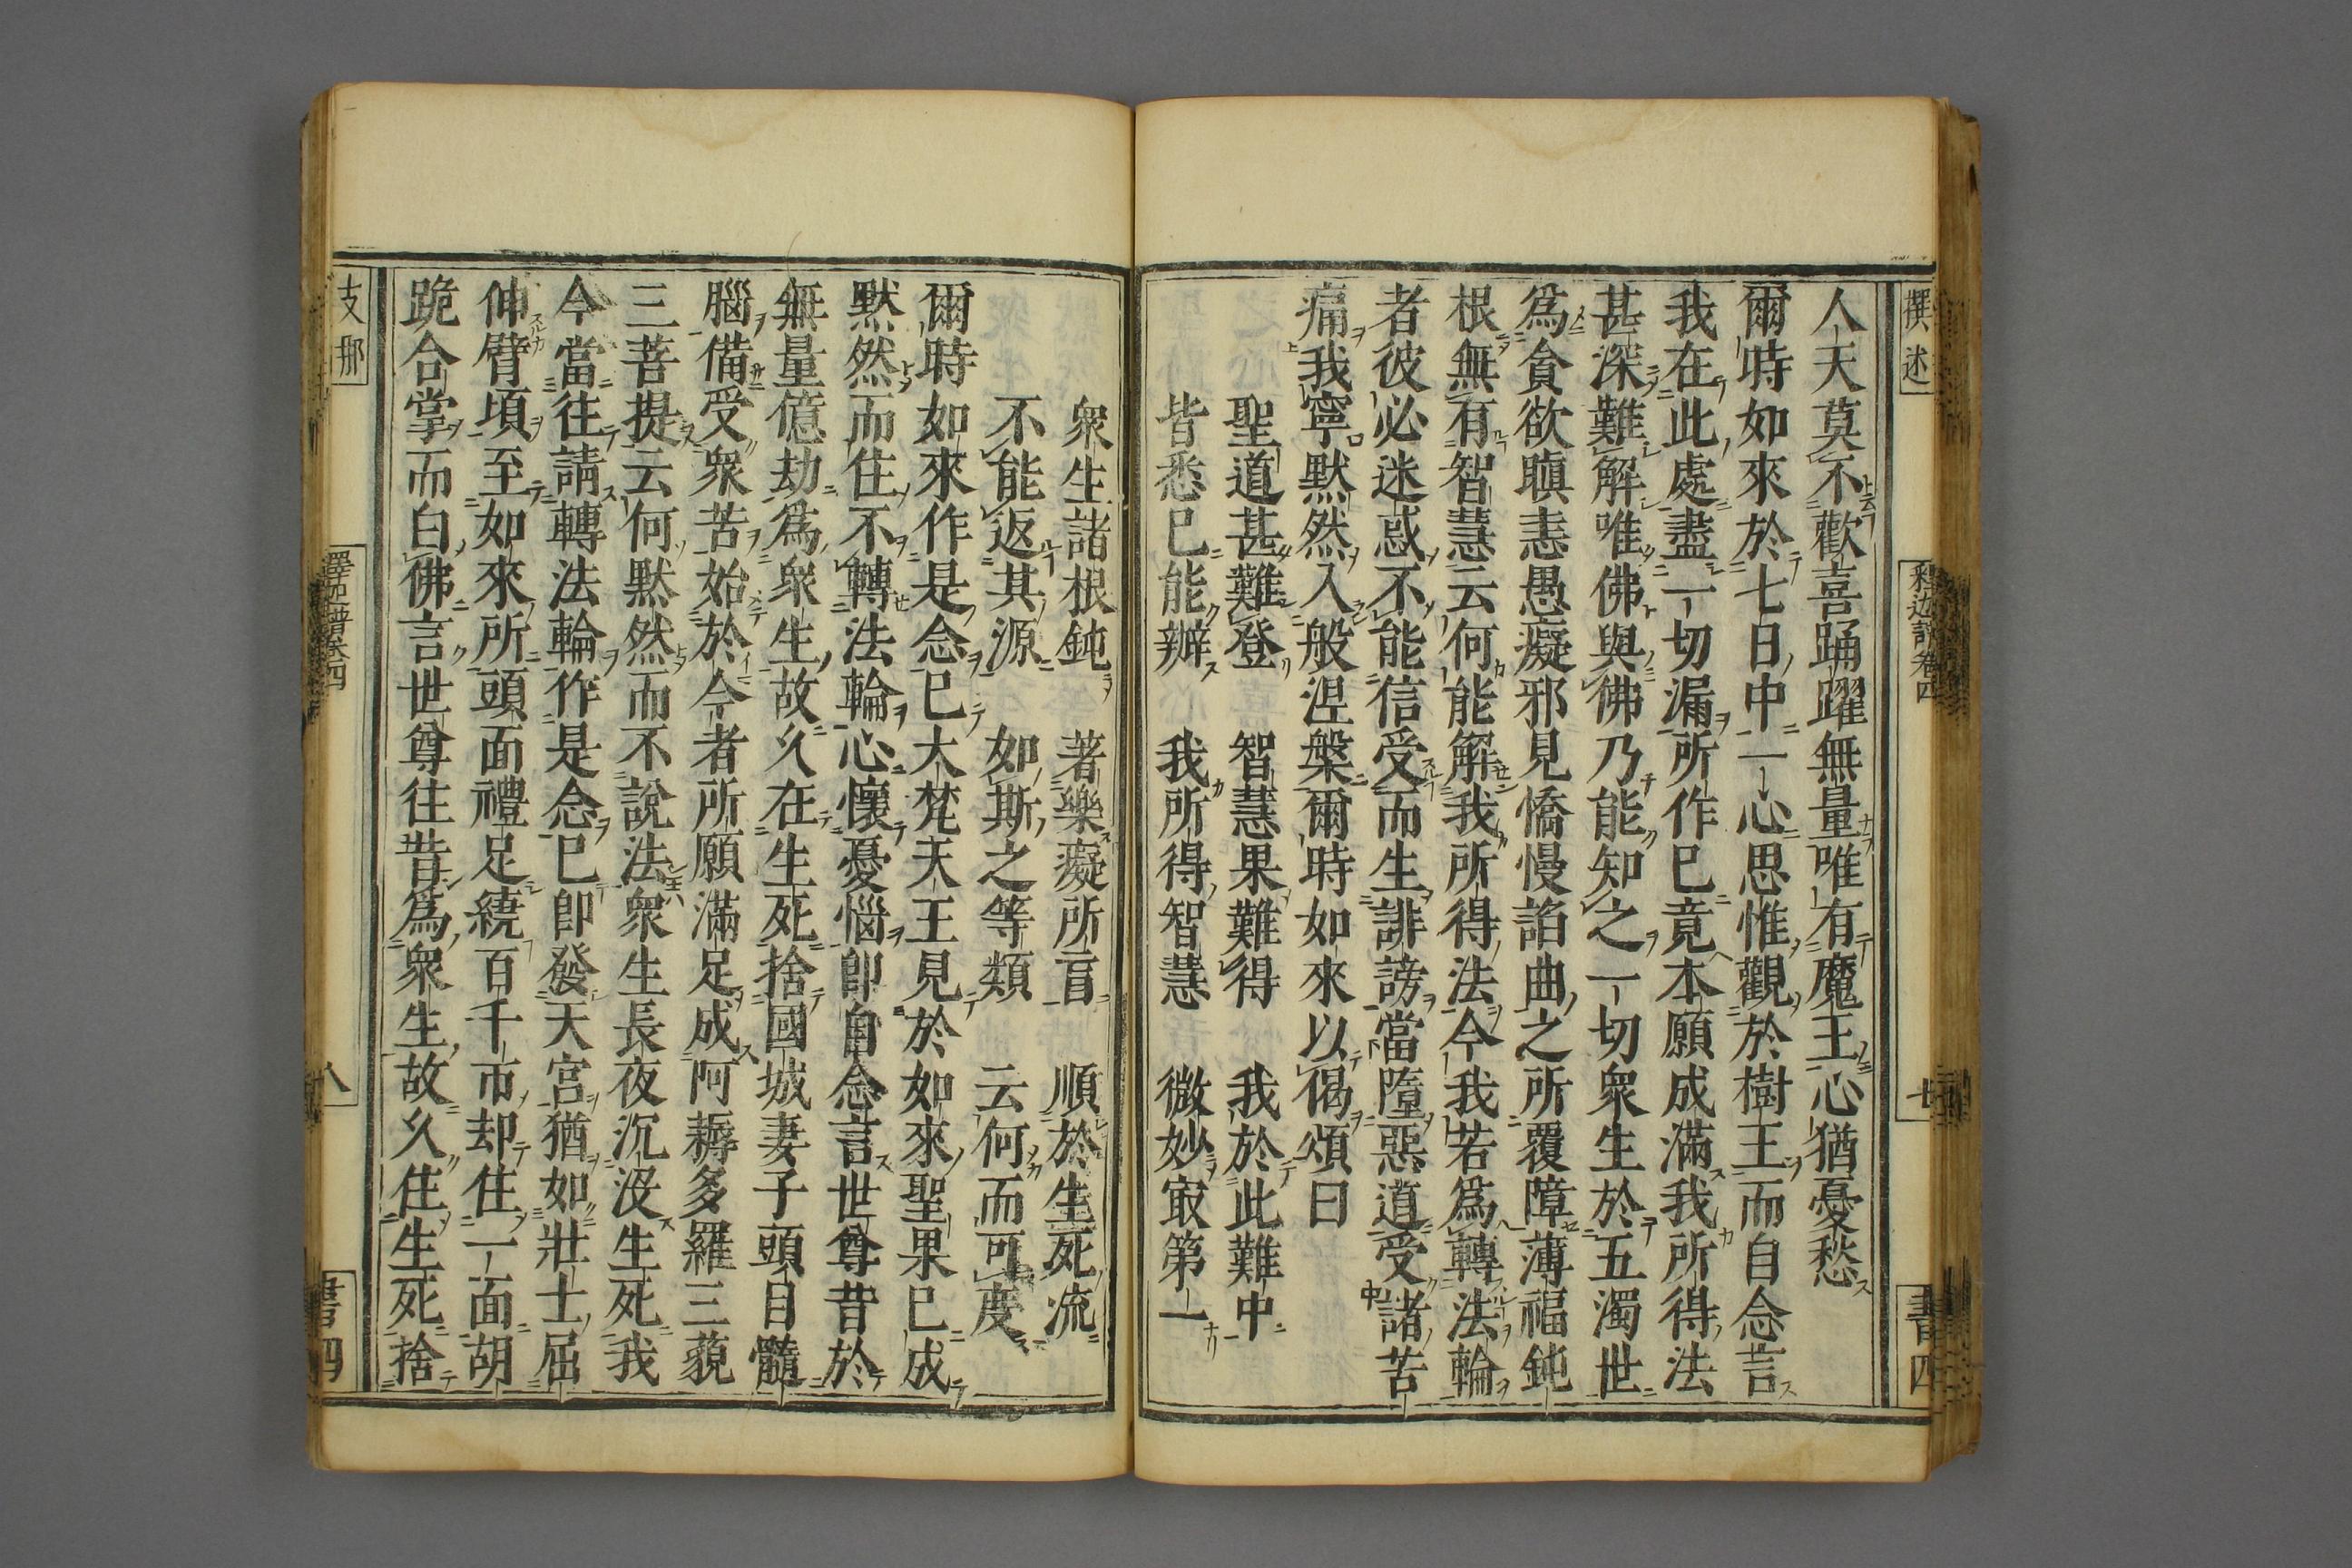 撰述
釋迦譜卷四
七
書四
人天莫不歡喜踊躍無量唯有魔王心猶憂愁
爾時如來於七日中一心思惟觀於樹王而自念言
我在此處盡一切漏所作已竟本願成滿我所得法
甚深難解唯佛與佛乃能知之一切衆生於五濁世
爲貪欲瞋恚愚癡邪見憍慢諂曲之所覆障薄福鈍
根無有智慧云何能解我所得法今我若爲轉法輪
者彼必迷惑不能信受而生誹謗當墮惡道受諸苦
痛我寧默然入般涅槃爾時如來以偈頌曰
聖道甚難登　智慧果難得　我於此難中
皆悉已能辦　我所得智慧　微妙㝡第一
衆生諸根鈍　著樂癡所盲　順於生死流
不能返其源　如斯之等類　云何而可度
爾時如來作是念已大梵天王見於如來聖果已成
默然而住不轉法輪心懷憂惱卽自念言世尊昔於
無量億劫爲衆生故久在生死捨國城妻子頭目髓
腦備受衆苦始於今者所願滿足成阿耨多羅三藐
三菩提云何默然而不說法衆生長夜沉没生死我
今當往請轉法輪作是念已卽發天宮猶如壯士屈
伸臂頃至如來所頭面禮足繞百千帀却住一面胡
跪合掌而白佛言世尊往昔爲衆生故久住生死捨
支那
釋迦譜卷四
八
書四